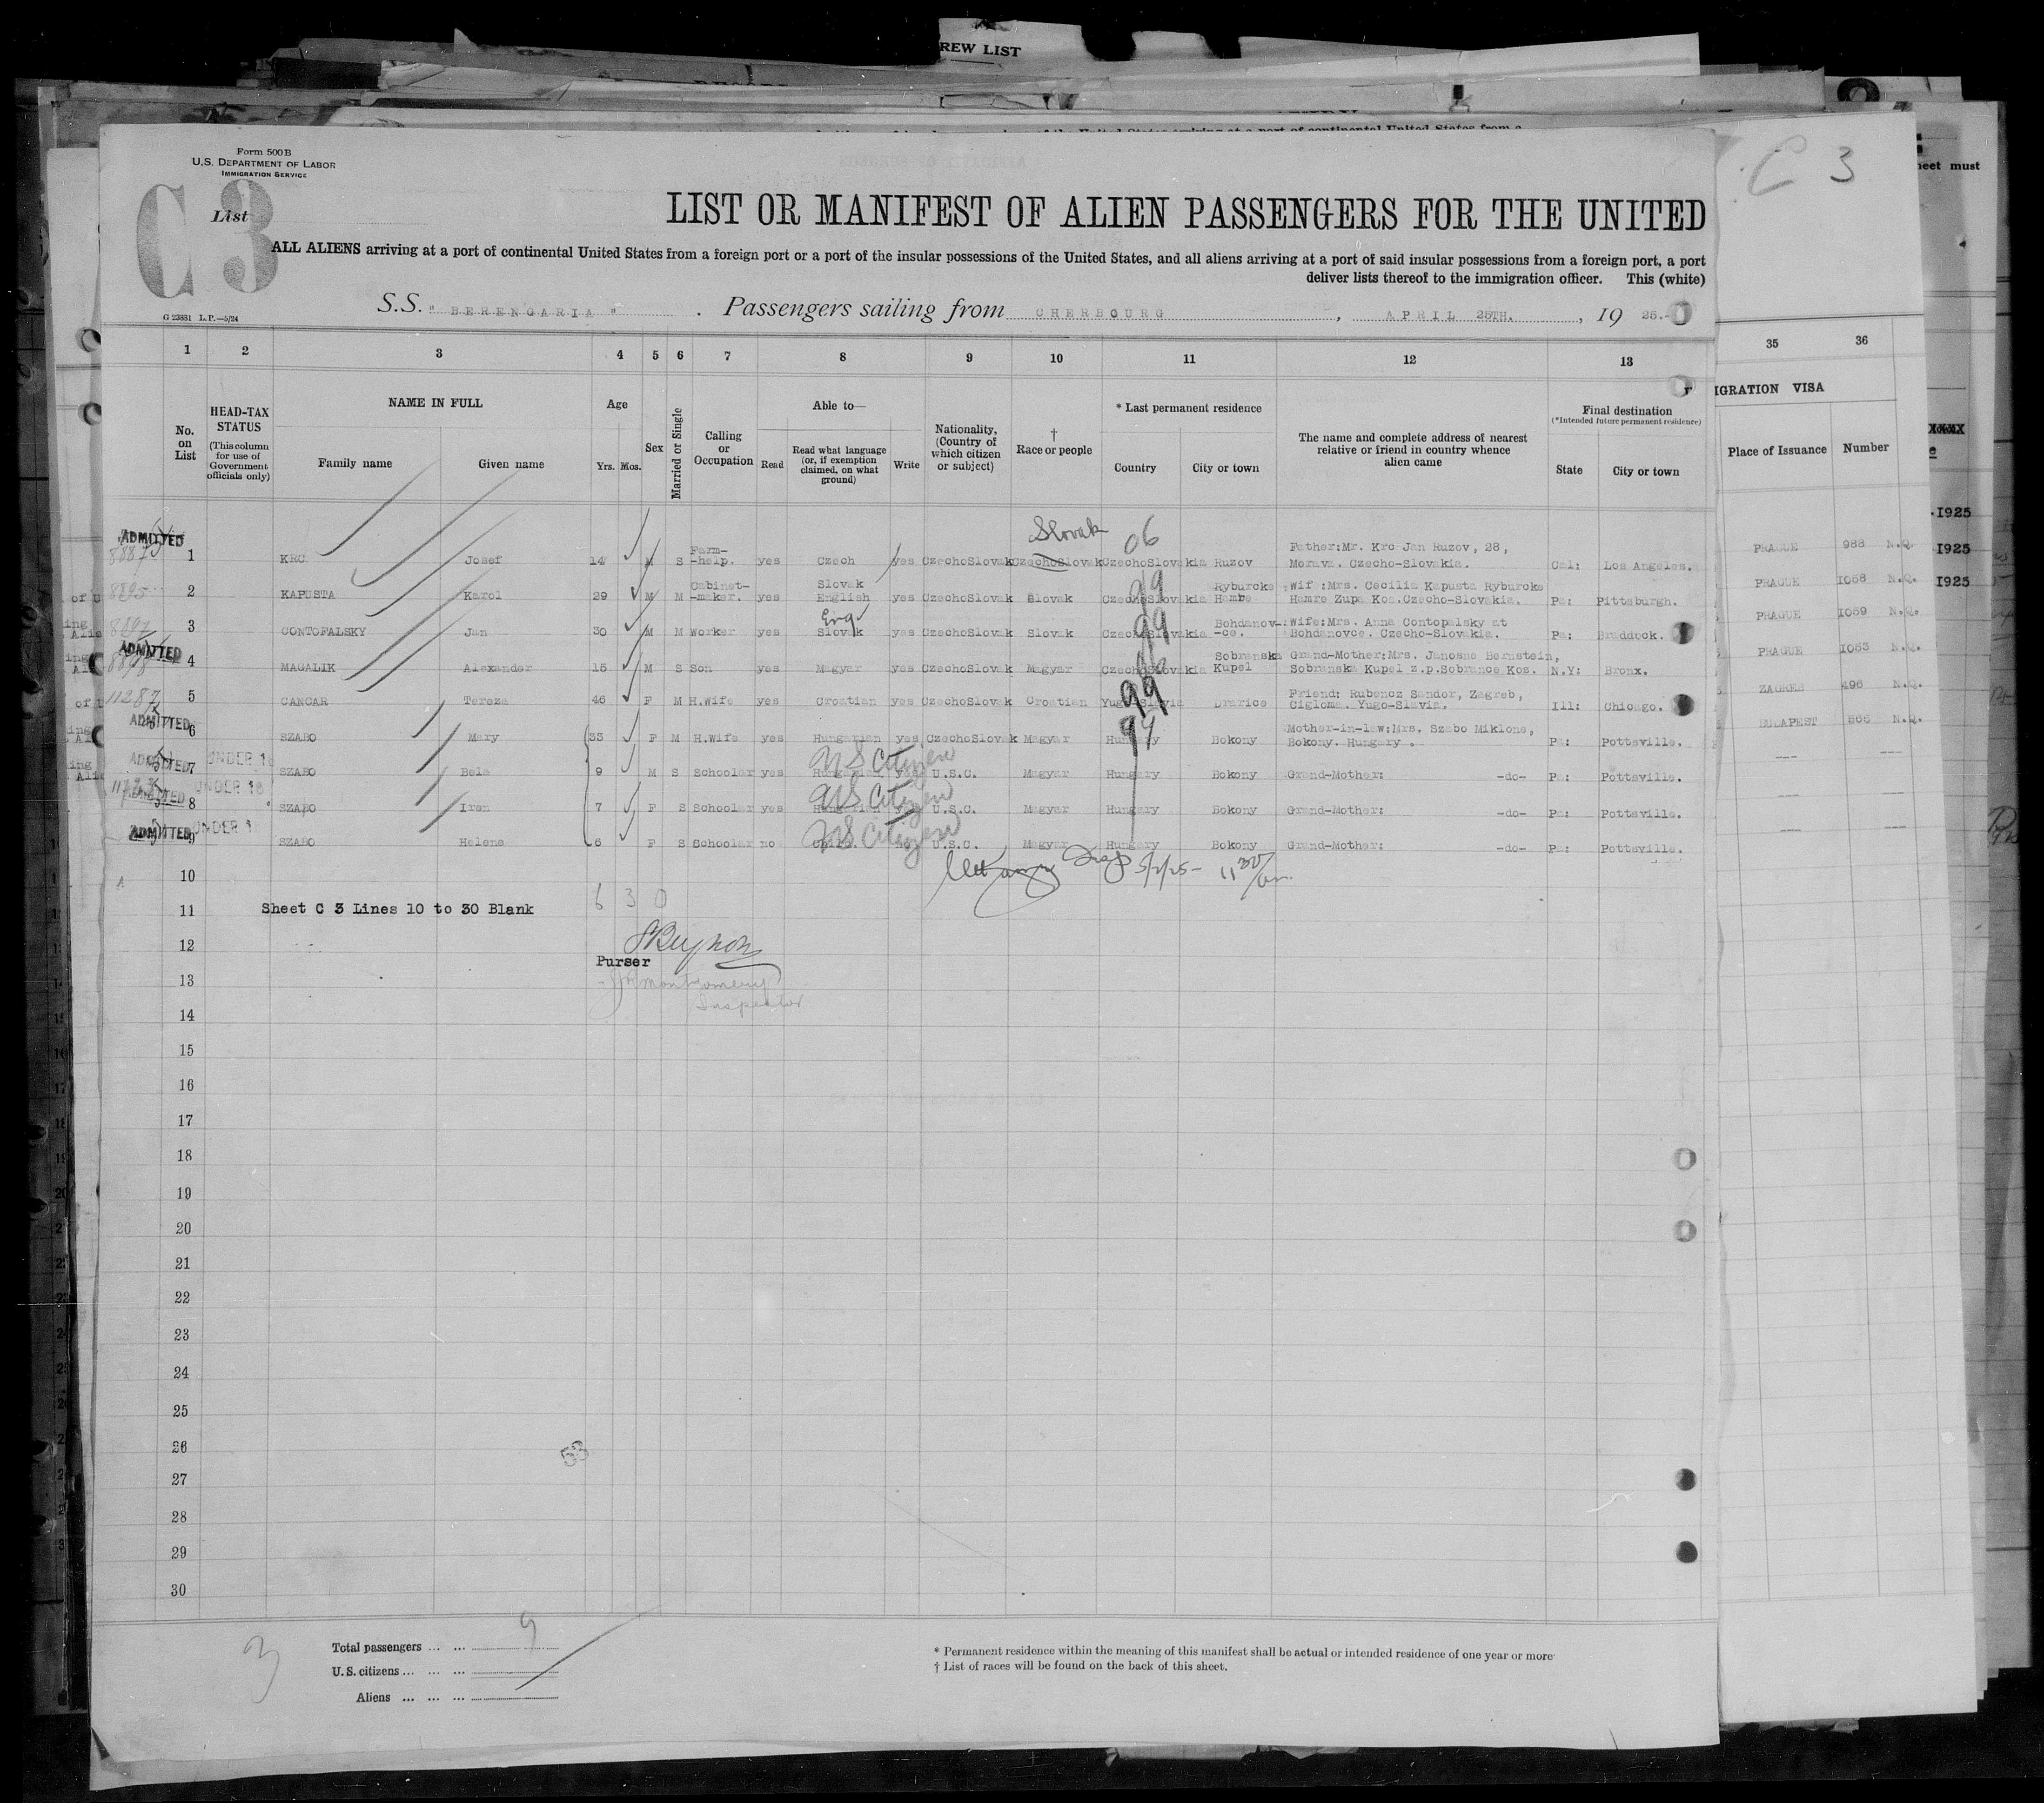 REW LIST
Form 500 B
U.S. DEPARTMENT OF LABOR
IMMIGRATION SERVICE
C 3
List
LIST OR MANIFEST OF ALIEN PASSENGERS FOR THE UNITED
ALL ALIENS arriving at a port of continental United States from a foreign port or a port of the insular possessions of the United States, and all aliens arriving at a port of said insular possessions from a foreign port, a port
deliver lists thereof to the immigration officer. This (white)
S.S. "BERENGARIA". Passengers sailing from CHERBOURG, APRIL 25TH., 19 25.
G 23881 L.P.—5/24
1 2 3 4 5 6 7 8 9 10 11 12 13
No. on List
HEAD-TAX STATUS (This column for use of Government officials only)
NAME IN FULL
Family name Given name
Age
Yrs. Mos.
Sex
Married or Single
Calling or Occupation
Able to—
Read Read what language (or, if exemption claimed, on what ground) Write
Nationality, (Country of which citizen or subject)
† Race or people
* Last permanent residence
Country City or town
The name and complete address of nearest relative or friend in country whence alien came
Final destination
(*Intended future permanent residence)
State City or town
Slovak 06
ADMITTED 8887 1 KRC Josef 14 M S Farm-help. yes Czech yes CzechoSlovak CzechoSlovak CzechoSlovakia Ruzov Father:Mr. Krc Jan Ruzov, 28, Morava. Czecho-Slovakia. Cal: Los Angeles.
8895 2 KAPUSTA Karol 29 M M Cabinet-maker. yes Slovak English yes CzechoSlovak Slovak CzechoSlovakia 99 Ryburcke Hamre Wife:Mrs. Cecilia Kapusta Ryburcke Hamre Zupa Kos.Czecho-Slovakia. Pa: Pittsburgh.
8897 3 CONTOFALSKY Jan 30 M M Worker yes Eng Slovak yes CzechoSlovak Slovak CzechoSlovakia 99 Bohdanov-ce. Wife:Mrs. Anna Contopalsky at Bohdanovce. Czecho-Slovakia. Pa: Braddock.
ADMITTED 8898 4 MAGALIK Alexander 15 M S Son yes Magyar yes CzechoSlovak Magyar CzechoSlovakia Sobranska Kupel Grand-Mother:Mrs. Janosne Bernstein, Sobranska Kupel z.p.Sobrance Kos. N.Y: Bronx.
11287 5 CANCAR Tereza 46 F M H.Wife yes Croatian yes CzechoSlovak Croatian Yugo-Slavia 99 Drarice Friend: Rubencz Sandor, Zagreb, Cigloma. Yugo-Slavia. Ill: Chicago.
ADMITTED 6 SZABO Mary 33 F M H.Wife yes Hungarian yes CzechoSlovak Magyar Hungary 94 Bokony Mother-in-law:Mrs. Szabo Miklone, Bokony. Hungary. Pa: Pottsville.
ADMITTED 7 UNDER 16 SZABO Bela 9 M S Schoolar yes Hungarian yes US Citizen U.S.C. Magyar Hungary Bokony Grand-Mother: -do- Pa: Pottsville.
ADMITTED 8 UNDER 16 SZABO Iren 7 F S Schoolar yes Hungarian US Citizen U.S.C. Magyar Hungary Bokony Grand-Mother: -do- Pa: Pottsville.
ADMITTED 9 UNDER 1 SZABO Helene 6 F S Schoolar no US Citizen U.S.C. Magyar Hungary Bokony Grand-Mother: -do- Pa: Pottsville.
10 5/2/25- 11 30/am.
11 Sheet C 3 Lines 10 to 30 Blank 6 3 0
12
Purser
13
JHMontgomery
Inspector
14
15
16
17
18
19
20
21
22
23
24
25
26
53
27
28
29
30
3
Total passengers 9
U.S. citizens
Aliens
* Permanent residence within the meaning of this manifest shall be actual or intended residence of one year or more
† List of races will be found on the back of this sheet.
C 3
35 36
IGRATION VISA
Place of Issuance Number
PRAGUE 988 N.Q.
PRAGUE 1058 N.Q.
PRAGUE 1059 N.Q.
PRAGUE 1053 N.Q.
ZAGREB 496 N.Q.
BUDAPEST 565 N.Q.
heet must
1925
1925
1925